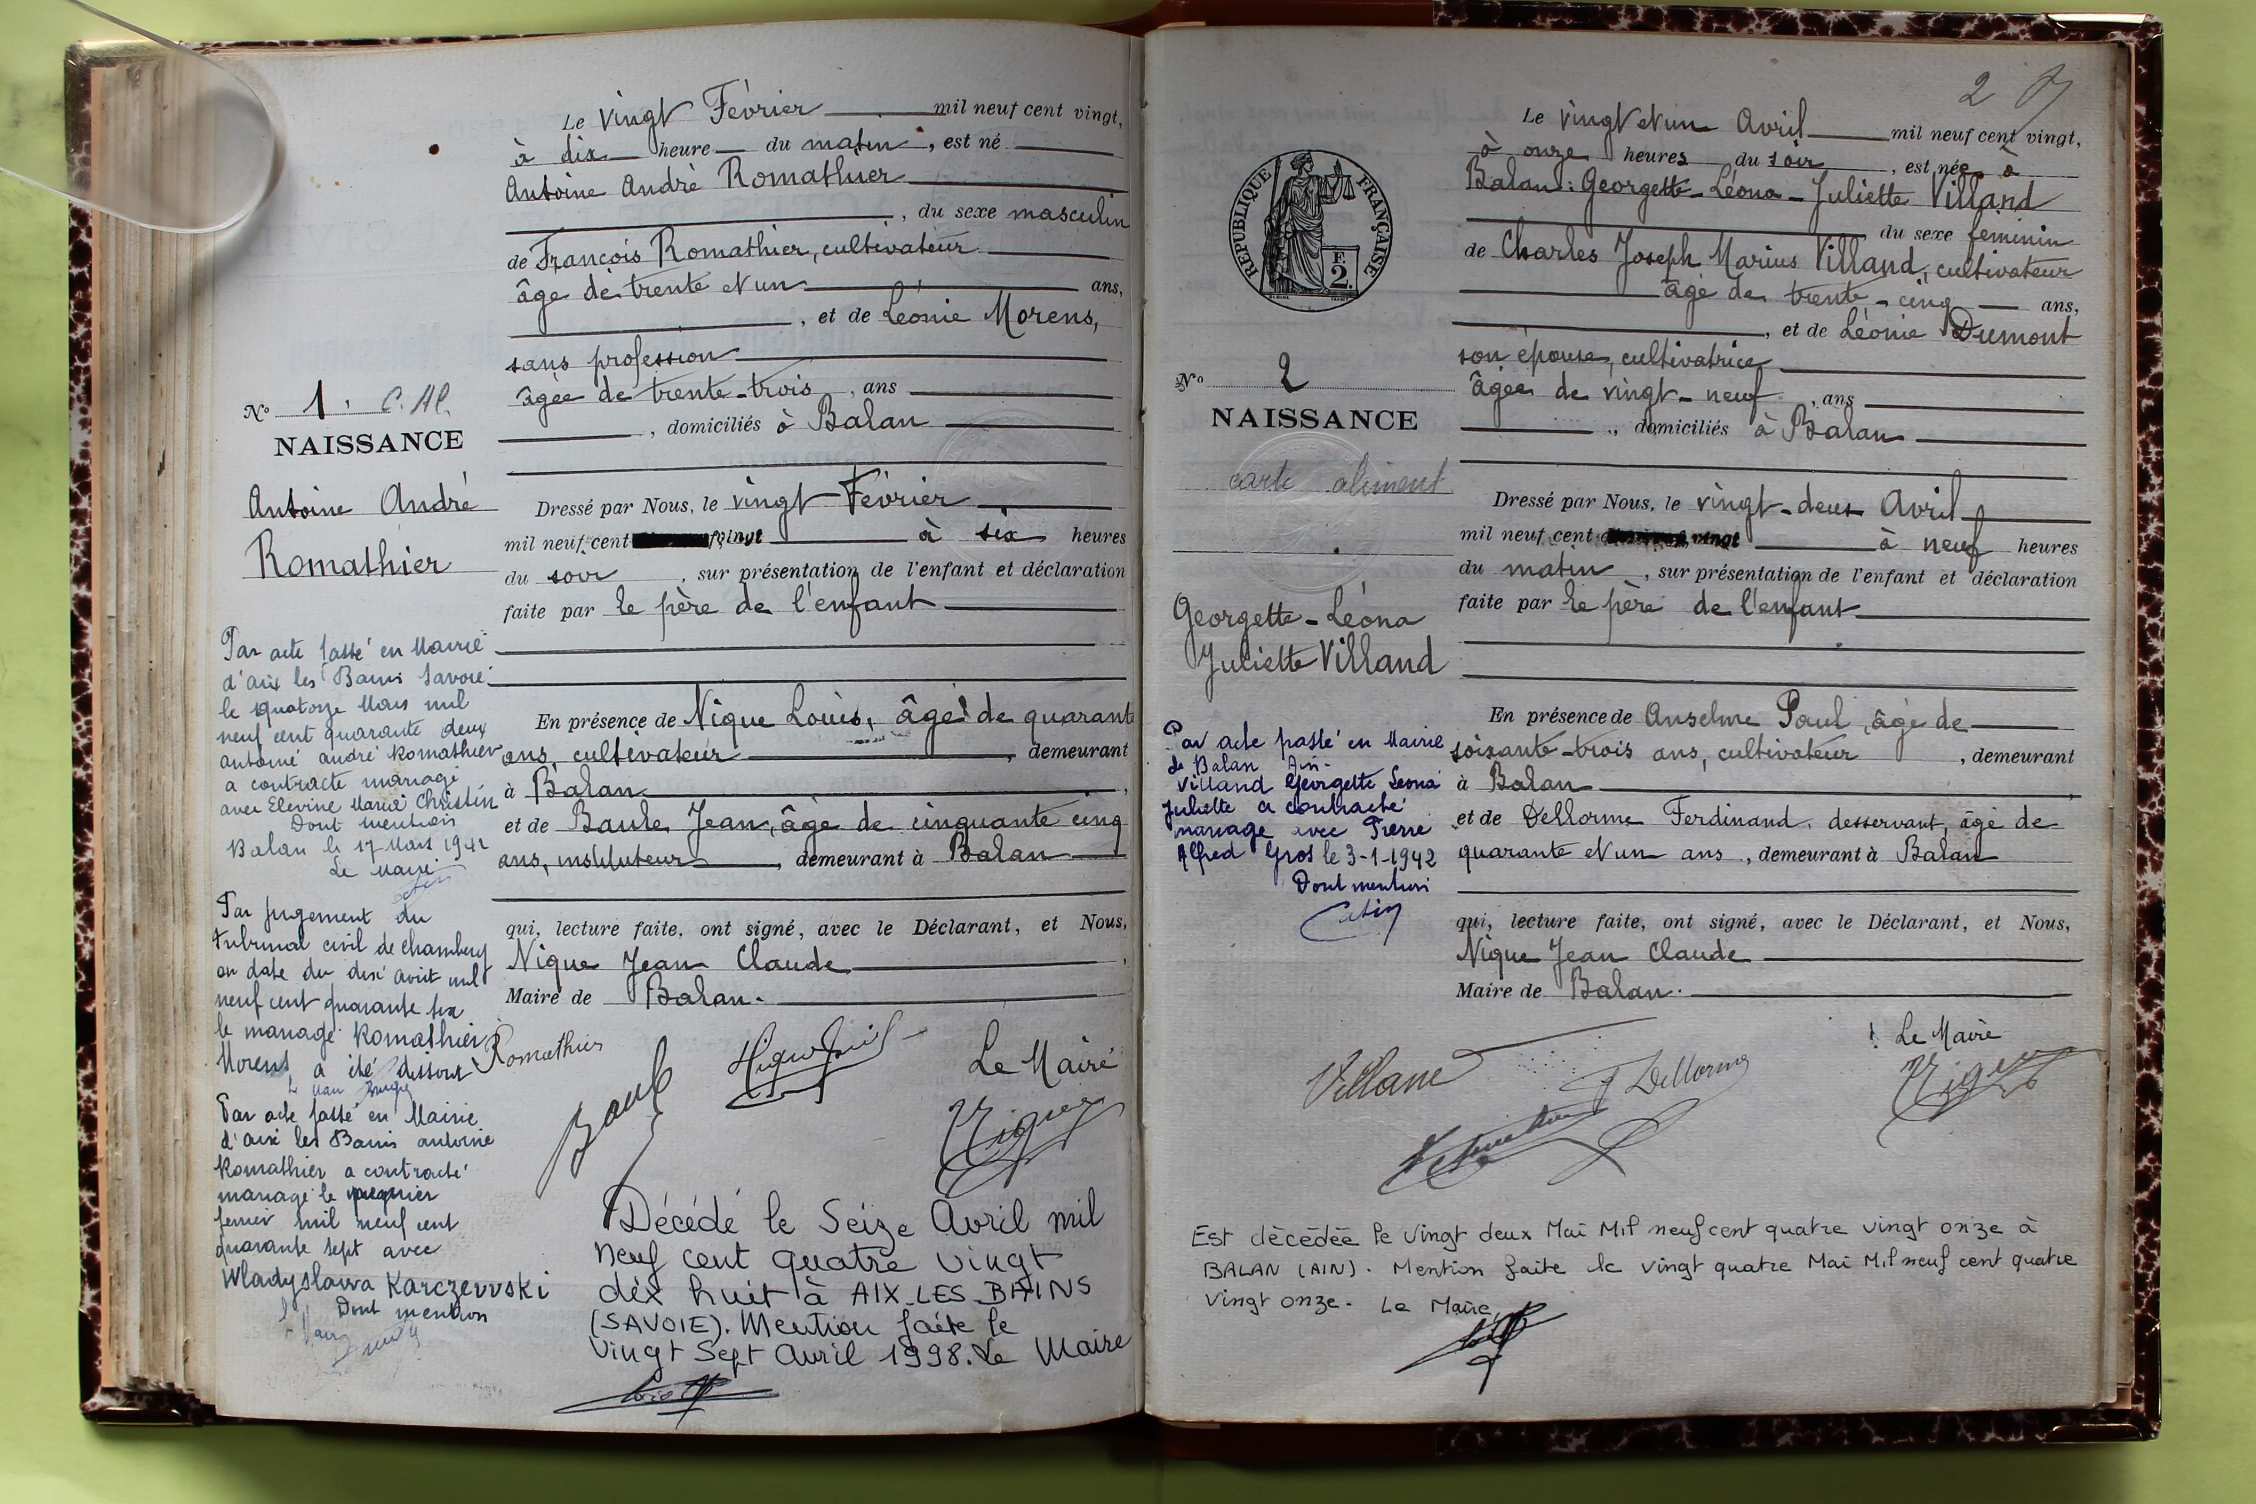 Le vingt Février mil neuf cent vingt,
à dix heure du matin, est né
Antoine André Romathier
, du sexe masculin
de François Romathier, cultivateur
âgé de trente et un ans,
, et de Léonie Morens,
sans profession
âgée de trente-trois, ans
, domiciliés à Balan
Nº 1. C. Al.
NAISSANCE
Antoine André
Romathier
Dressé par Nous, le vingt Février
mil neuf cent vingt à six heures
du soir, sur présentation de l'enfant et déclaration
faite par le père de l'enfant
En présence de Nique Louis, âgé de quarante
ans, cultivateur, demeurant
à Balan,
et de Baule Jean, âgé de cinquante cinq
ans, instituteur, demeurant à Balan
qui, lecture faite, ont signé, avec le Déclarant, et Nous,
Nique Jean Claude,
Maire de Balan.
Romathier
Baule
Le Maire
Nique
Par acte passé en Mairie
d'aix les Bains Savoie
le quatorze Mars mil
neuf cent quarante deux
antoine andré Romathier
a contracté mariage
avec Elevine Marie Christin
Dont mention
Balan le 17 Mars 1942
Le Maire
Par jugement du
tribunal civil de chambery
en date du dix août mil
neuf cent quarante six
le mariage Romathier
Morens a été dissout
Par acte passé en Mairie
d'aix les Bains antoine
Romathier a contracté
mariage le premier
fevrier mil neuf cent
quarante sept avec
Wladyslawa Karczewski
Dont mention
Décédé le Seize Avril mil
neuf cent quatre vingt
dix huit à AIX-LES-BAINS
(SAVOIE). Mention faite le
Vingt Sept Avril 1998. Le Maire
2
Le vingt et un Avril mil neuf cent vingt,
à onze heures du soir, est née à
Balan: Georgette-Léona-Juliette Villand
du sexe féminin
de Charles Joseph Marius Villand, cultivateur
âgé de trente-cinq ans,
, et de Léonie Dumont
son épouse, cultivatrice
âgée de vingt-neuf, ans
, domiciliés à Balan
RÉPUBLIQUE FRANÇAISE
F.
2.
Nº 2
NAISSANCE
carte aliment
Georgette-Léona
Juliette Villand
Dressé par Nous, le vingt-deux Avril
mil neuf cent vingt à neuf heures
du matin, sur présentation de l'enfant et déclaration
faite par le père de l'enfant
En présence de Anselme Paul, âgé de
soixante-trois ans, cultivateur, demeurant
à Balan
et de Dellorme Ferdinand, desservant, âgé de
quarante et un ans, demeurant à Balan
qui, lecture faite, ont signé, avec le Déclarant, et Nous,
Nique Jean Claude
Maire de Balan.
Villand
F Dellorme
Le Maire
Nique
Par acte passé en Mairie
de Balan Ain.
Villand Georgette Leona
Juliette a contracté
mariage avec Pierre
Alfred Gros le 3-1-1942
Dont mention
Est décédée le vingt deux Mai Mil neuf cent quatre vingt onze à
BALAN (AIN). Mention faite le vingt quatre Mai Mil neuf cent quatre
vingt onze. Le Maire